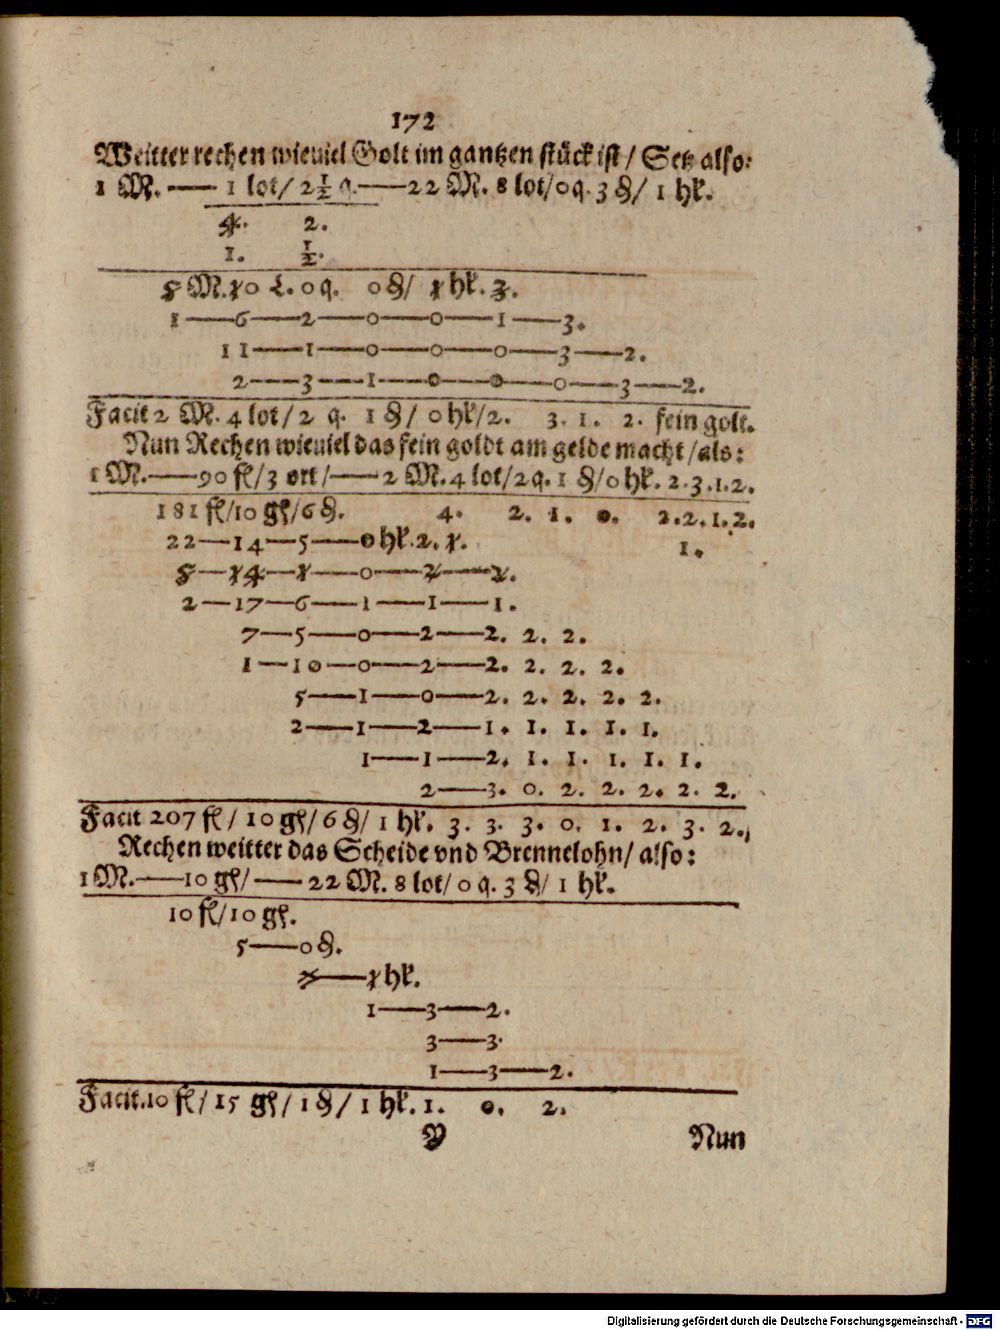 172
Weitter rechen wieuiel Golt im gantzen stück ist / Setz also:
1 M. —— 1 lot / 2½ q. —— 22 M. 8 lot / 0 q. 3 ₰ / 1 hlr.
4. 2.
1. ½.
5 M. 10 L. 0 q. 0 ₰ / 1 hlr. 3.
1 — 6 — 2 — 0 — 0 — 1 — 3.
11 — 1 — 0 — 0 — 0 — 3 — 2.
2 — 3 — 1 — 0 — 0 — 0 — 3 — 2.
Facit 2 M. 4 lot / 2 q. 1 ₰ / 0 hlr / 2. 3. 1. 2. fein golt.
Nun Rechen wieuiel das fein goldt am gelde macht / als:
1 M. —— 90 fl / 3 ort / —— 2 M. 4 lot / 2 q. 1 ₰ / 0 hlr. 2. 3. 1. 2.
181 fl / 10 gſ / 6 ₰. 4. 2. 1. 0. 2. 2. 1. 2.
22 — 14 — 5 — 0 hlr. 2. 1. 1.
5 — 14 — 1 — 0 — 2 — 2.
2 — 17 — 6 — 1 — 1 — 1.
7 — 5 — 0 — 2 — 2. 2. 2.
1 — 10 — 0 — 2 — 2. 2. 2. 2.
5 — 1 — 0 — 2. 2. 2. 2. 2.
2 — 1 — 2 — 1. 1. 1. 1. 1.
1 — 1 — 2. 1. 1. 1. 1. 1.
2 — 3. 0. 2. 2. 2. 2. 2.
Facit 207 fl / 10 gſ / 6 ₰ / 1 hlr. 3. 3. 3. 0. 1. 2. 3. 2.
Rechen weitter das Scheide vnd Brennelohn / also:
1 M. —— 10 gſ / —— 22 M. 8 lot / 0 q. 3 ₰ / 1 hlr.
10 fl / 10 gſ.
5 — 0 ₰.
— 1 hlr.
1 — 3 — 2.
3 — 3.
1 — 3 — 2.
Facit. 10 fl / 15 gſ / 1 ₰ / 1 hlr. 1. 0. 2.
Y Nun
Digitalisierung gefördert durch die Deutsche Forschungsgemeinschaft - DFG